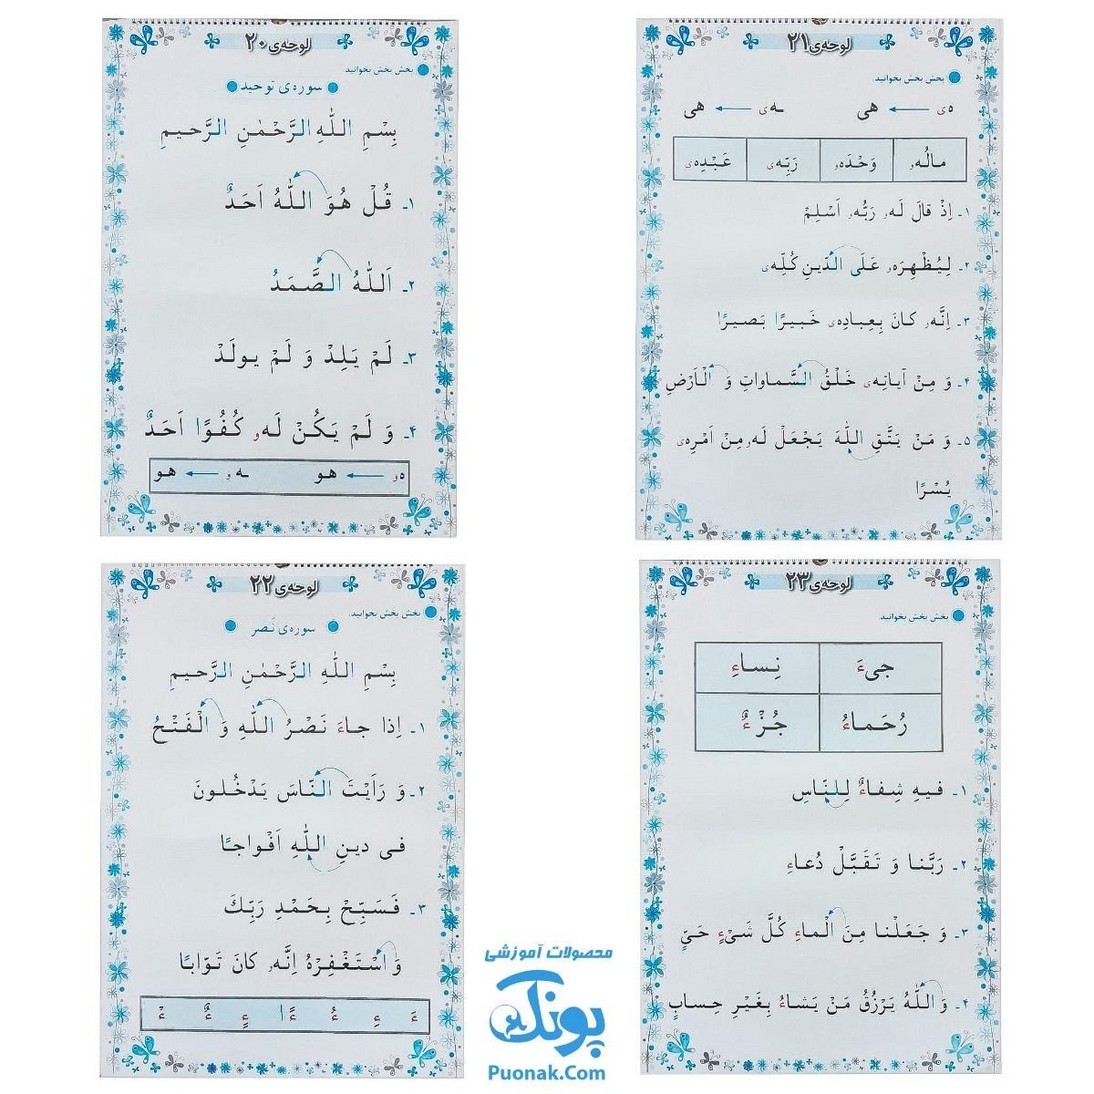 لوحه‌ی ۲۰
بخش بخش بخوانید
سوره‌ی توحید
بِسْمِ اللّٰهِ الرَّحْمٰنِ الرَّحیمِ
۱ـ قُلْ هُوَ اللّٰهُ اَحَدٌ
۲ـ اَللّٰهُ الصَّمَدُ
۳ـ لَمْ یَلِدْ وَ لَمْ یولَدْ
۴ـ وَ لَمْ یَکُنْ لَهو کُفُوًا اَحَدٌ
هو ← هو ـهو ← هو
لوحه‌ی ۲۱
بخش بخش بخوانید
هی ← هی ـهی ← هی
مالُهو وَحْدَهو رَبِّهی عَبْدِهی
۱ـ اِذْ قالَ لَهو رَبُّهو اَسْلِمْ
۲ـ لِیُظْهِرَهو عَلَی الدّینِ کُلِّهی
۳ـ اِنَّهو کانَ بِعِبادِهی خَبیرًا بَصیرًا
۴ـ وَ مِنْ آیاتِهی خَلْقُ السَّماواتِ وَ الْاَرْضِ
۵ـ وَ مَنْ یَتَّقِ اللّٰهَ یَجْعَلْ لَهو مِنْ اَمْرِهی
یُسْرًا
لوحه‌ی ۲۲
بخش بخش بخوانید.
سوره‌ی نَصر
بِسْمِ اللّٰهِ الرَّحْمٰنِ الرَّحیمِ
۱ـ اِذا جاءَ نَصْرُ اللّٰهِ وَ الْفَتْحُ
۲ـ وَ رَاَیْتَ النّاسَ یَدْخُلونَ
فی دینِ اللّٰهِ اَفْواجًا
۳ـ فَسَبِّحْ بِحَمْدِ رَبِّكَ
وَ اسْتَغْفِرْهُ اِنَّهو کانَ تَوّابًا
ءَ ءِ ءُ ءًا ءٍ ءٌ ءْ
لوحه‌ی ۲۳
بخش بخش بخوانید
جیءَ نِساءِ
رُحَماءُ جُزْءٌ
۱ـ فیهِ شِفاءٌ لِلنّاسِ
۲ـ رَبَّنا وَ تَقَبَّلْ دُعاءِ
۳ـ وَ جَعَلْنا مِنَ الْماءِ کُلَّ شَیْءٍ حَیٍّ
۴ـ وَ اللّٰهُ یَرْزُقُ مَنْ یَشاءُ بِغَیْرِ حِسابٍ
محصولات آموزشی
پونک
Puonak.Com